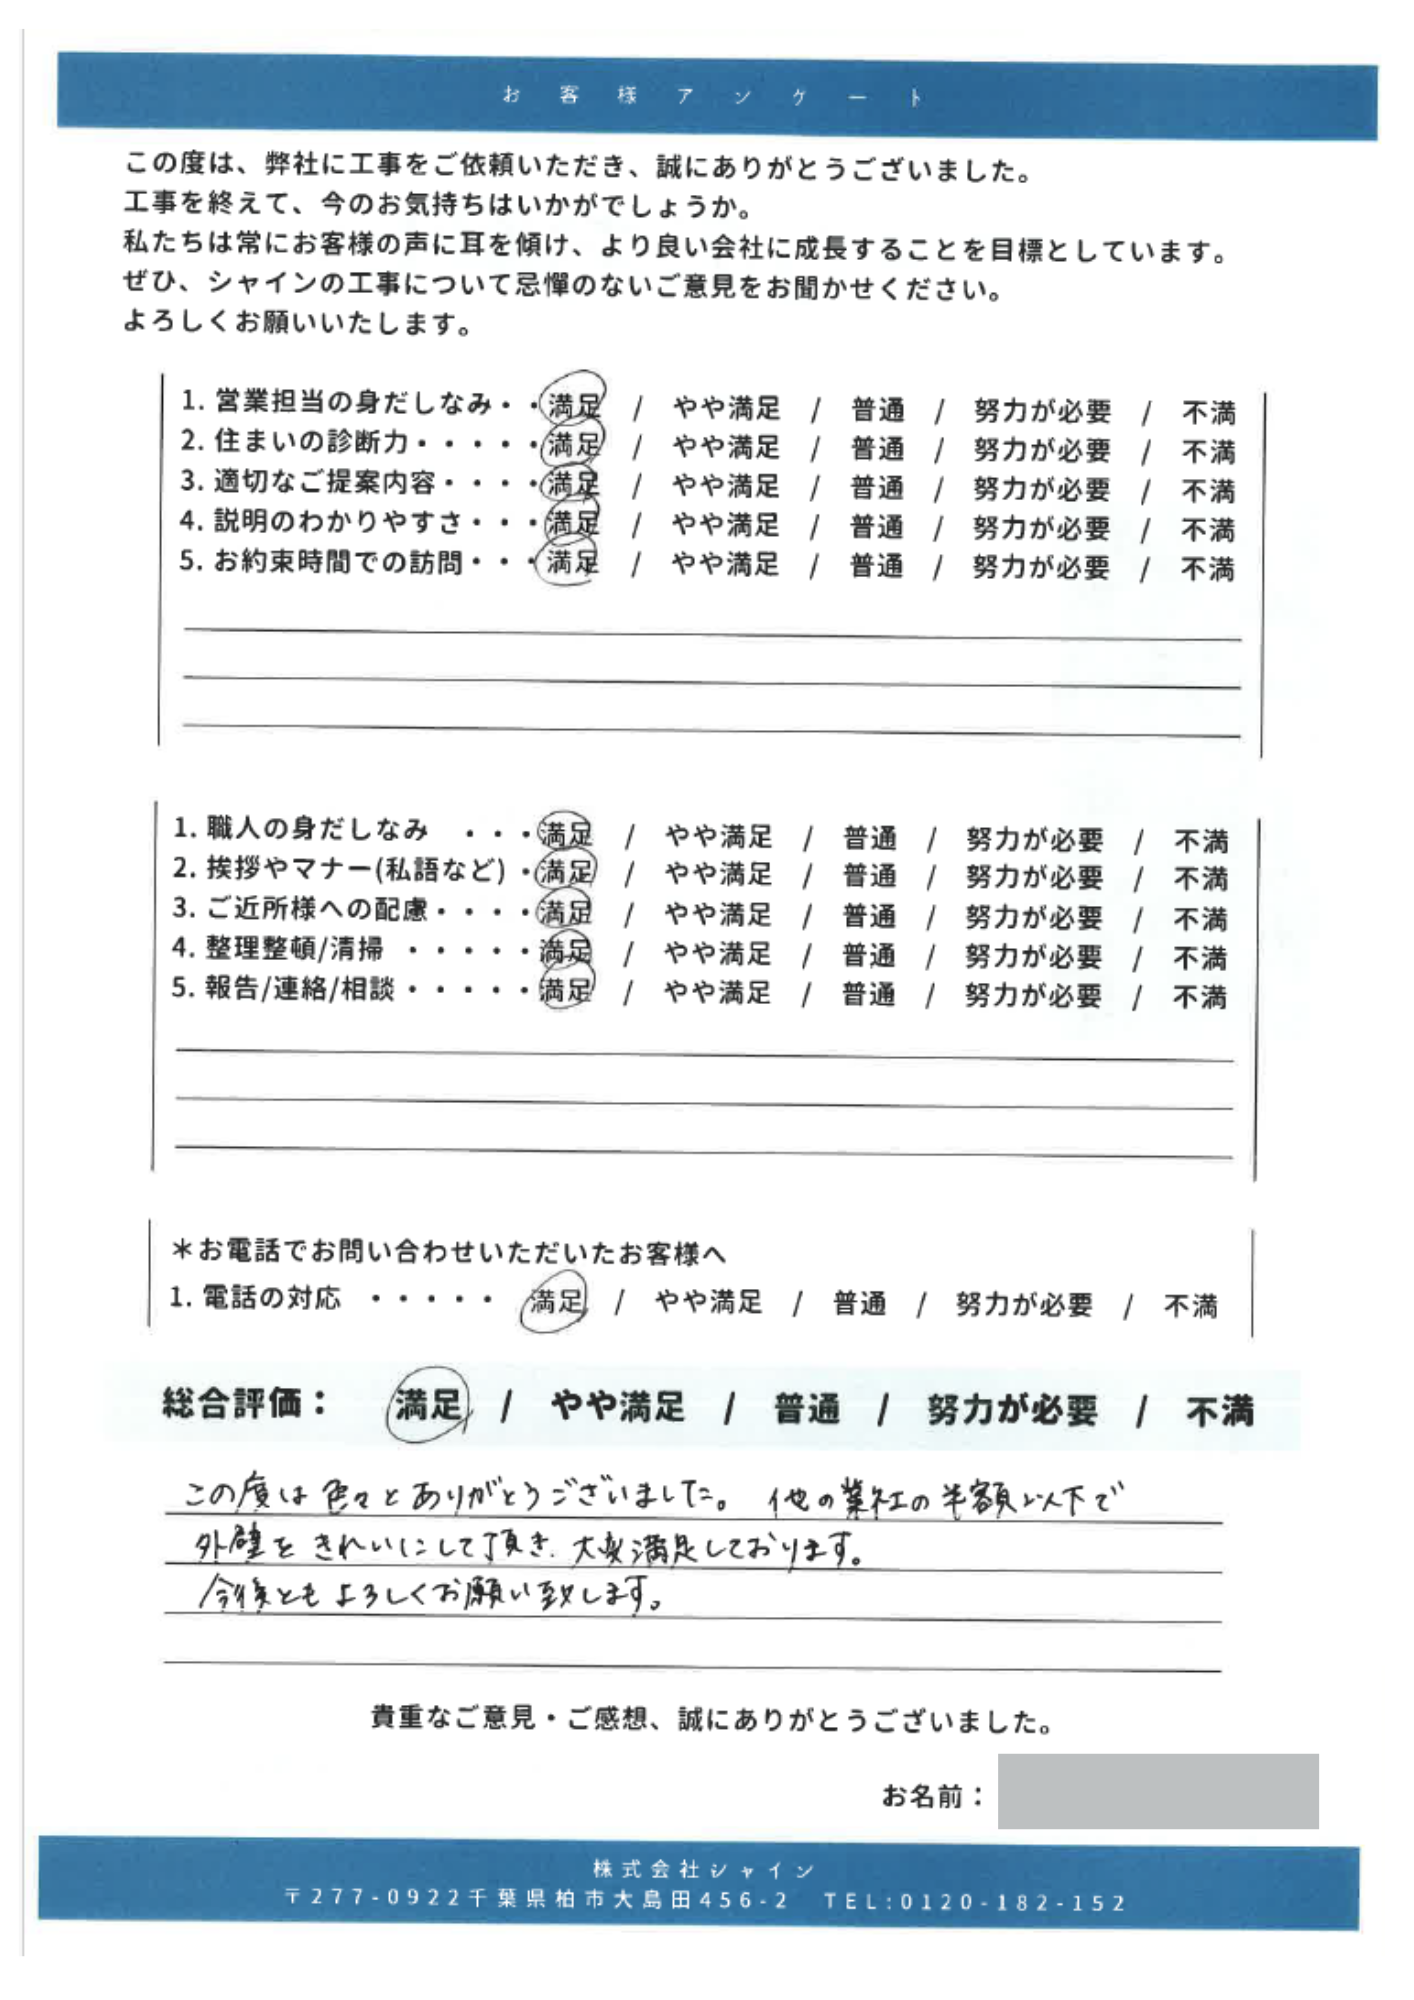 お客様アンケート
この度は、弊社に工事をご依頼いただき、誠にありがとうございました。
工事を終えて、今のお気持ちはいかがでしょうか。
私たちは常にお客様の声に耳を傾け、より良い会社に成長することを目標としています。
ぜひ、シャインの工事について忌憚のないご意見をお聞かせください。
よろしくお願いいたします。
1. 営業担当の身だしなみ・・満足 / やや満足 / 普通 / 努力が必要 / 不満
2. 住まいの診断力・・・・・満足 / やや満足 / 普通 / 努力が必要 / 不満
3. 適切なご提案内容・・・・満足 / やや満足 / 普通 / 努力が必要 / 不満
4. 説明のわかりやすさ・・・満足 / やや満足 / 普通 / 努力が必要 / 不満
5. お約束時間での訪問・・・満足 / やや満足 / 普通 / 努力が必要 / 不満
1. 職人の身だしなみ ・・・満足 / やや満足 / 普通 / 努力が必要 / 不満
2. 挨拶やマナー(私語など)・満足 / やや満足 / 普通 / 努力が必要 / 不満
3. ご近所様への配慮・・・・満足 / やや満足 / 普通 / 努力が必要 / 不満
4. 整理整頓/清掃 ・・・・・満足 / やや満足 / 普通 / 努力が必要 / 不満
5. 報告/連絡/相談・・・・・満足 / やや満足 / 普通 / 努力が必要 / 不満
＊お電話でお問い合わせいただいたお客様へ
1. 電話の対応 ・・・・・ 満足 / やや満足 / 普通 / 努力が必要 / 不満
総合評価： 満足 / やや満足 / 普通 / 努力が必要 / 不満
この度は色々とありがとうございました。他の業社の半額以下で
外壁をきれいにして頂き、大変満足しております。
今後ともよろしくお願い致します。
貴重なご意見・ご感想、誠にありがとうございました。
お名前：
株式会社シャイン
〒277-0922千葉県柏市大島田456-2 TEL:0120-182-152